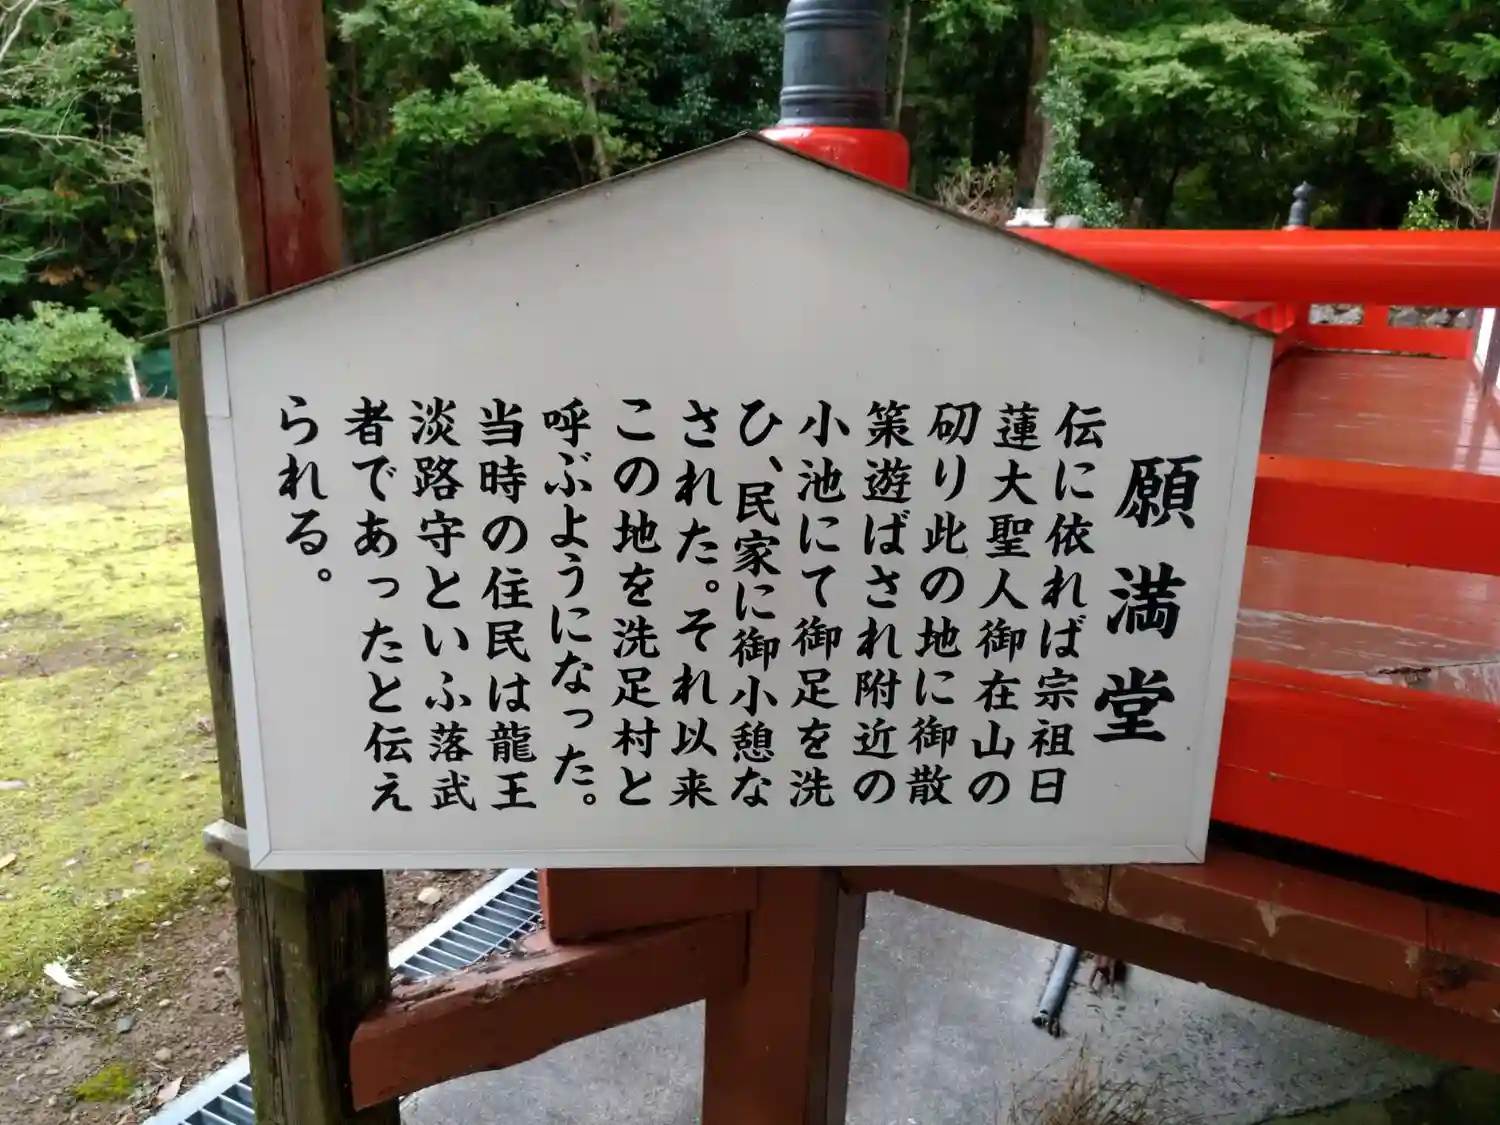 願満堂
伝に依れば宗祖日
蓮大聖人御在山の
砌り此の地に御散
策遊ばされ附近の
小池にて御足を洗
ひ、民家に御小憩な
された。それ以来
この地を洗足村と
呼ぶようになった。
当時の住民は龍王
淡路守といふ落武
者であったと伝え
られる。